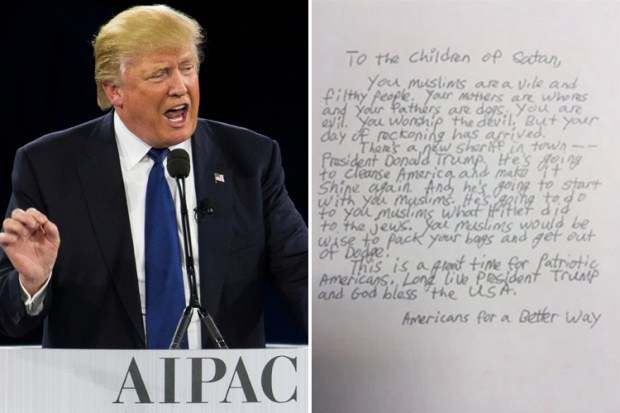 AIPAC
To the children of Satan,
You muslims are a vile and
filthy people. Your mothers are whores
and your fathers are dogs. You are
evil. You worship the devil. But your
day of reckoning has arrived.
There's a new sheriff in town --
President Donald Trump. He's going
to cleanse America and make it
shine again. And he's going to start
with you muslims. He's going to do
to you muslims what Hitler did
to the jews. You muslims would be
wise to pack your bags and get out
of Dodge.
This is a great time for Patriotic
Americans. Long live President Trump
and God bless the USA.
Americans for a Better Way